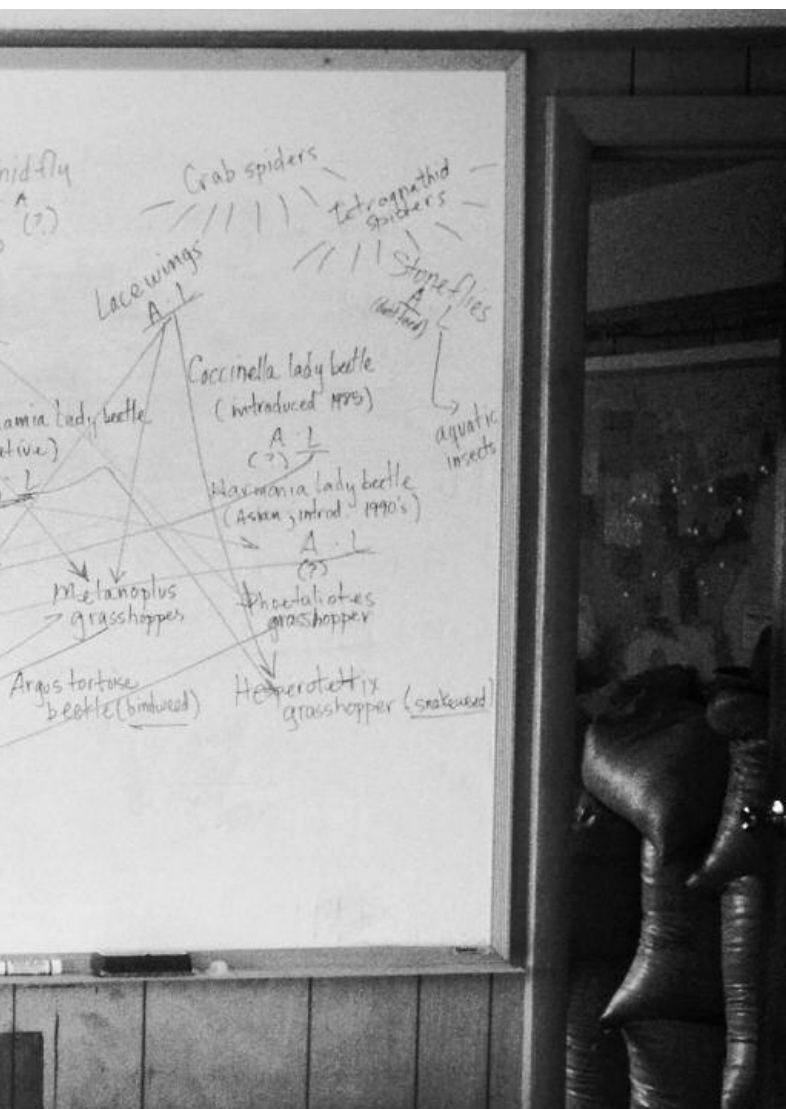 hidfly
A
(?)
Crab spiders
Tetragnathid
spiders
Lacewings
A · L
Stoneflies
A L
Coccinella lady beetle
(introduced 1985)
A · L
(?)
aquatic
insects
amia Lady beetle
ative)
L
Harmonia lady beetle
(Asian, introd. 1990's)
A · L
(?)
Melanoplus
grasshoppes
Phoetaliotes
grasshopper
Argus tortoise
beetle (bindweed)
Hesperotettix
grasshopper (snakeweed)